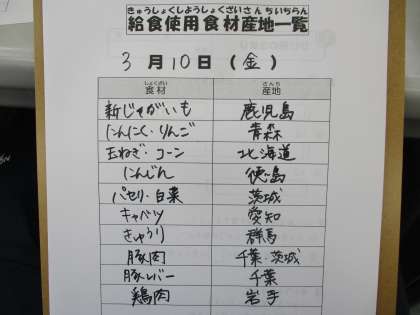 きゅうしょくしようしょくざいさんちいちらん
給食使用食材産地一覧
3月10日(金)
しょくざい さんち
食材 産地
新じゃがいも 鹿児島
にんにく・りんご 青森
玉ねぎ・コーン 北海道
にんじん 徳島
パセリ・白菜 茨城
キャベツ 愛知
きゅうり 群馬
豚肉 千葉・茨城
豚レバー 千葉
鶏肉 岩手